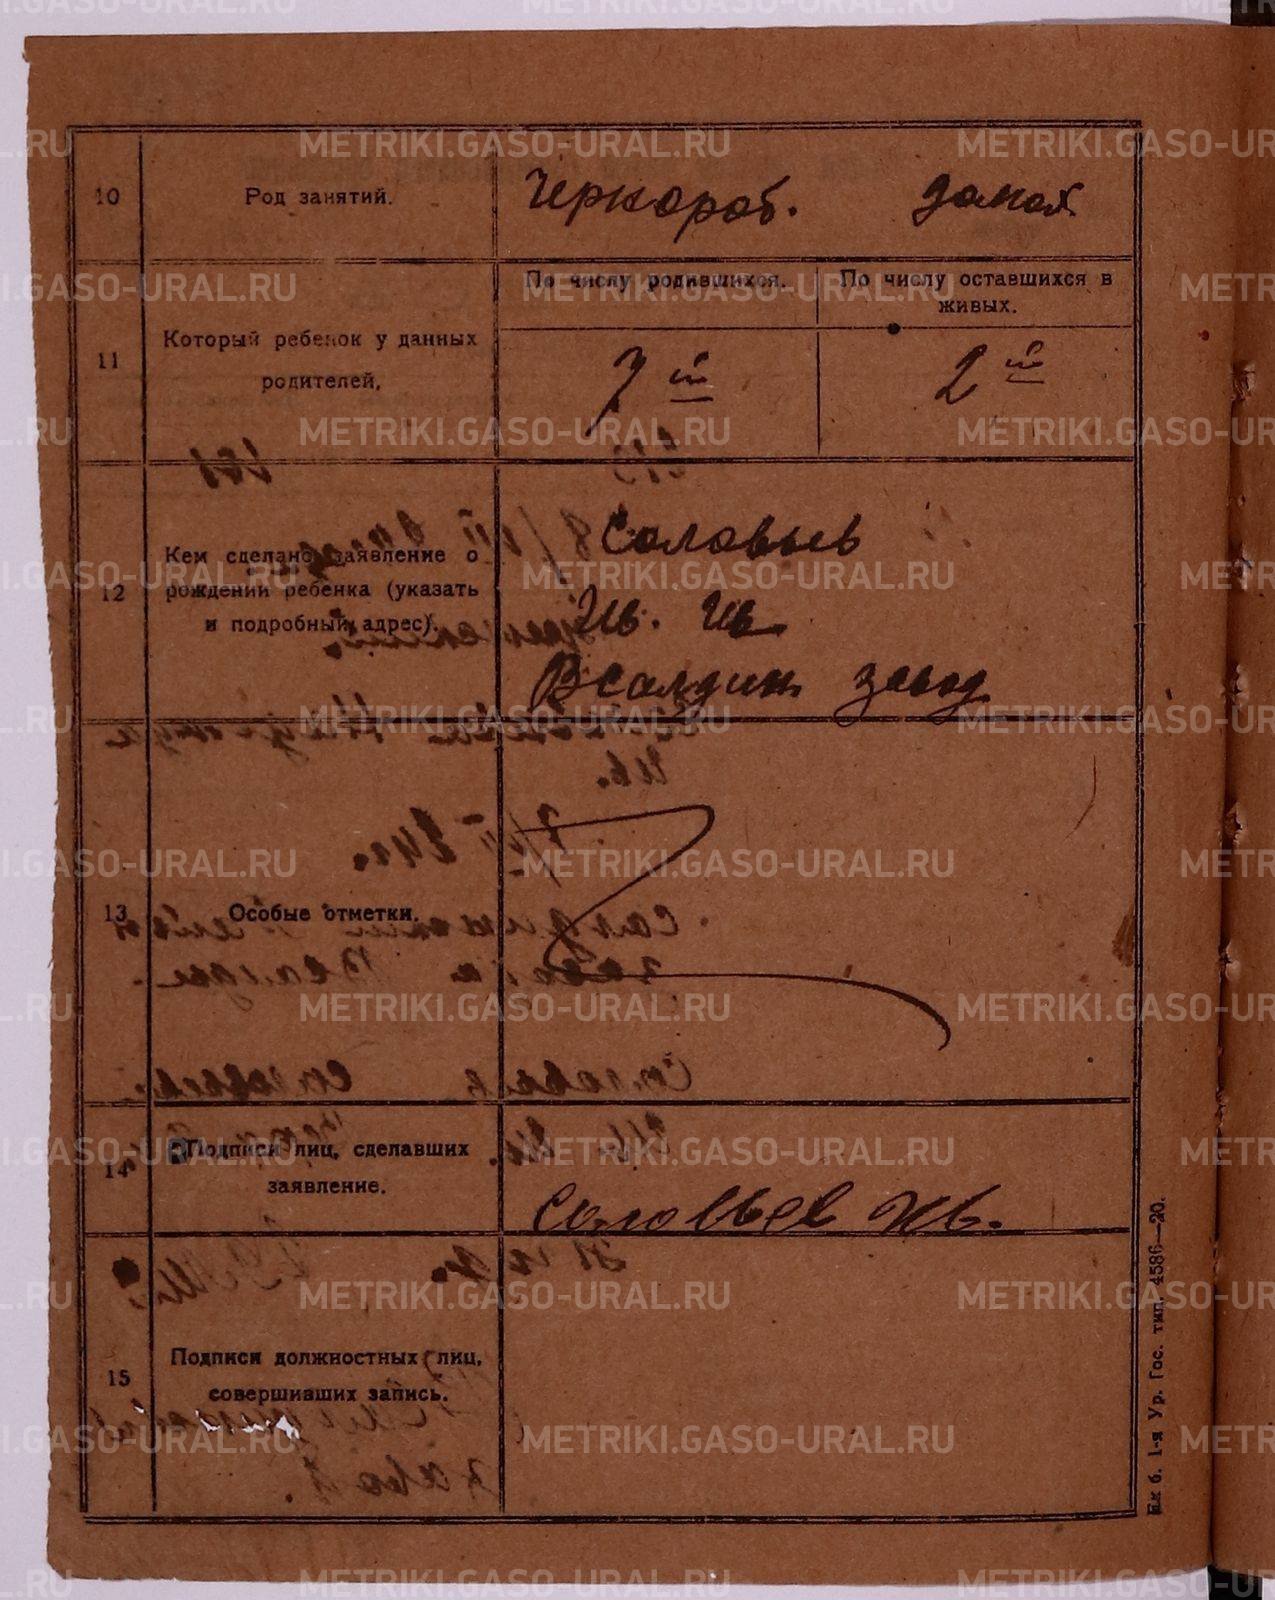 10
Род занятий.
Чернораб. домох
11
Который ребенок у данных
родителей,
По числу родившихся.
По числу оставшихся в
живых.
7 й
2 й
12
Кем сделано заявление о
рождении ребенка (указать
и подробный адрес).
Соловьев
Ив. Ив.
В Салдин завод
13
Особые отметки.
14
Подписи лиц, сделавших
заявление.
Соловьев Ив.
15
Подписи должностных лиц,
совершивших запись.
Ек б. 1-я Ур. Гос. тип. 4586—20.
METRIKI.GASO-URAL.RU